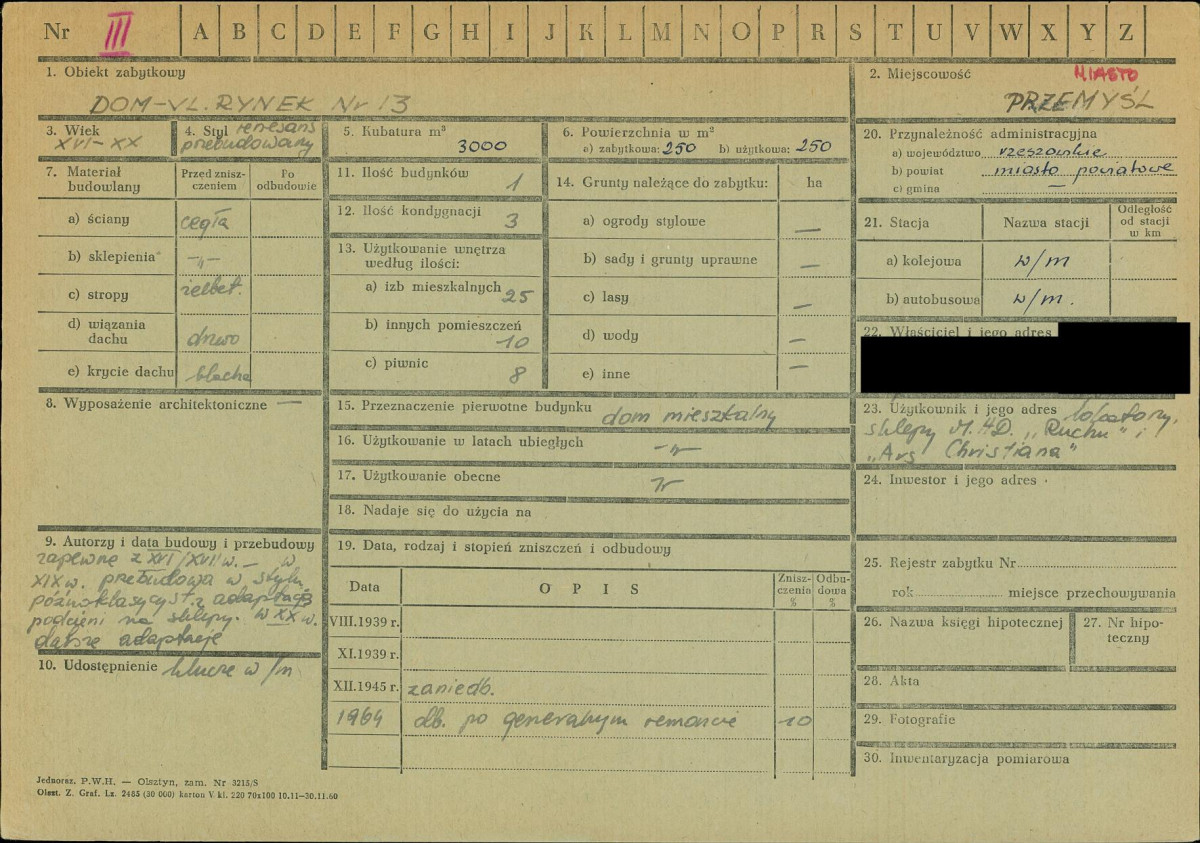 Nr III A B C D E F G H I J K L M N O P R S T U V W X Y Z
1. Obiekt zabytkowy
DOM – UL. RYNEK Nr 13
2. Miejscowość
MIASTO
PRZEMYŚL
3. Wiek
XVI – XX
4. Styl renesans
przebudowany
5. Kubatura m³
3000
6. Powierzchnia w m²
a) zabytkowa: 250 b) użytkowa: 250
20. Przynależność administracyjna
a) województwo rzeszowskie
b) powiat miasto powiatowe
c) gmina —
7. Materiał
budowlany
Przed znisz-
czeniem
Po
odbudowie
a) ściany cegła
b) sklepienia -„-
c) stropy żelbet.
d) wiązania
dachu drzwo
e) krycie dachu blacha
11. Ilość budynków 1
12. Ilość kondygnacji 3
13. Użytkowanie wnętrza
według ilości:
a) izb mieszkalnych 25
b) innych pomieszczeń
10
c) piwnic 8
14. Grunty należące do zabytku: ha
a) ogrody stylowe —
b) sady i grunty uprawne —
c) lasy —
d) wody —
e) inne —
21. Stacja Nazwa stacji Odległość
od stacji
w km
a) kolejowa w/m
b) autobusowa w/m.
22. Właściciel i jego adres
8. Wyposażenie architektoniczne —
15. Przeznaczenie pierwotne budynku dom mieszkalny
16. Użytkowanie w latach ubiegłych -„-
17. Użytkowanie obecne -„-
18. Nadaje się do użycia na
23. Użytkownik i jego adres lokatorzy,
sklepy M.H.D. „Ruchu” i
„Ars Christiana”
24. Inwestor i jego adres
9. Autorzy i data budowy i przebudowy
zapewne z XVI/XVII w. – w
XIX w. przebudowa w stylu
późnoklasycyst. z adaptacją
podcieni na sklepy. w XX w.
dalsze adaptacje
10. Udostępnienie klucze w/m
19. Data, rodzaj i stopień zniszczeń i odbudowy
Data OPIS Znisz-
czenia
% Odbu-
dowa
%
VIII.1939 r.
XI.1939 r.
XII.1945 r. zaniedb.
1964 db. po generalnym remoncie 10
25. Rejestr zabytku Nr
rok miejsce przechowywania
26. Nazwa księgi hipotecznej
27. Nr hipo-
teczny
28. Akta
29. Fotografie
30. Inwentaryzacja pomiarowa
Jednoraz. P.W.H. — Olsztyn, zam. Nr 3215/S
Olszt. Z. Graf. Lz. 2485 (30 000) karton V kl. 220 70x100 10.11—30.11.60